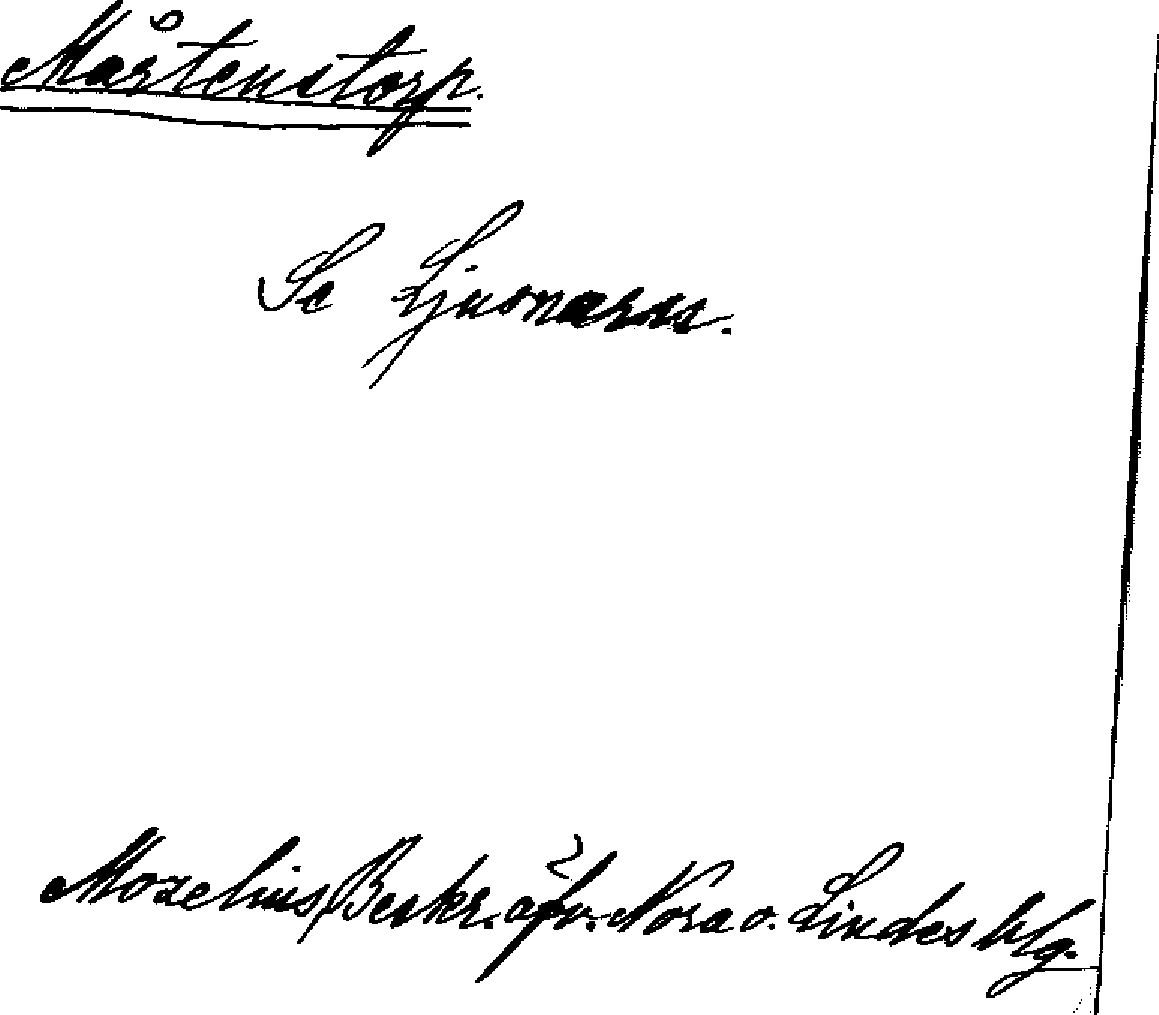 Mårtenstorp.
Se Ljusnarsn.
Mozelius, Beskr. öfv. Nora o. Lindes blg.